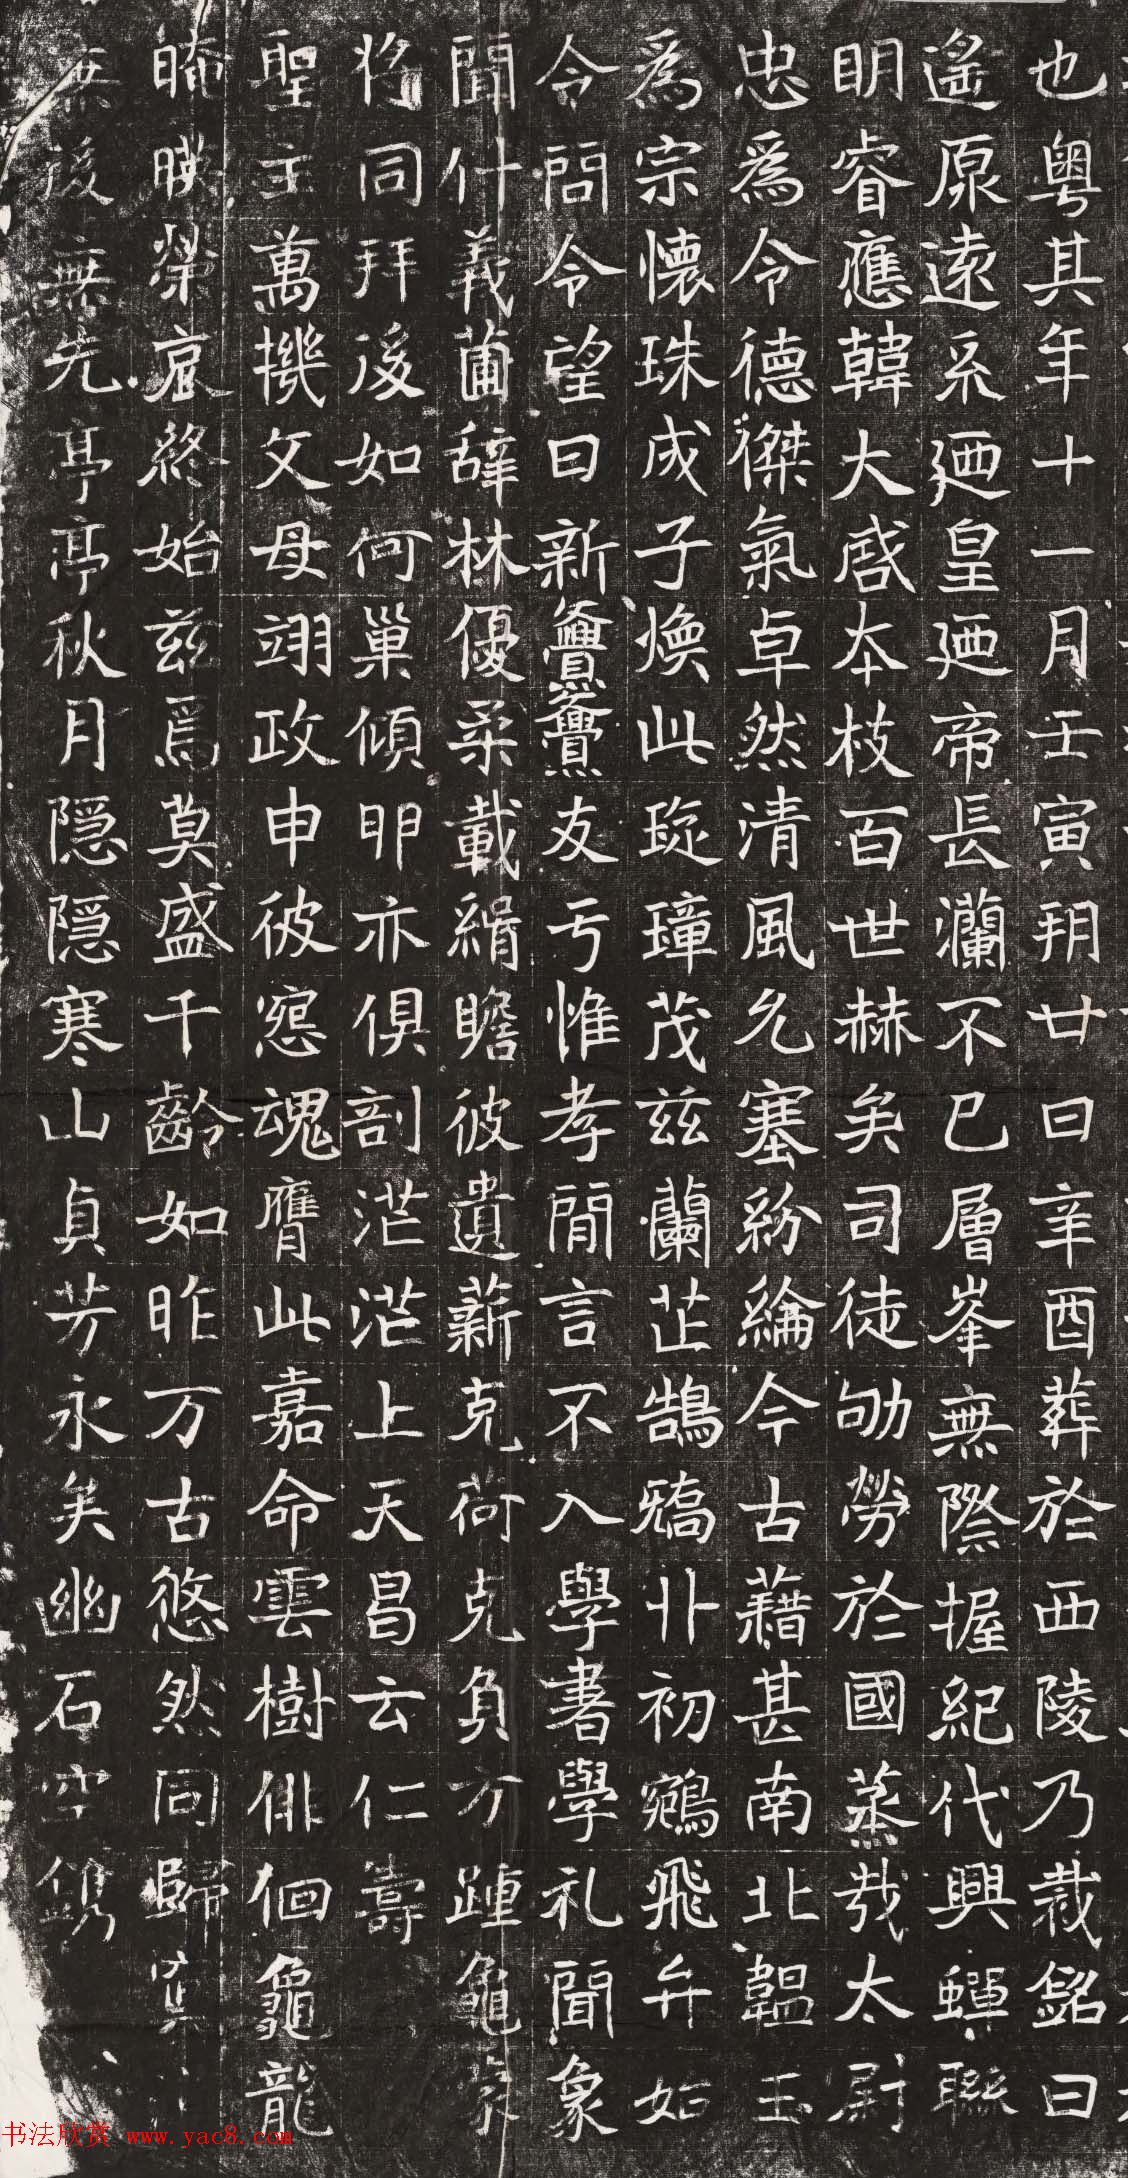 也粵其年十一月壬寅玥廿日辛酉葬於西陵乃裁銘曰
遙原遠系廼皇廼帝長瀾不已層峯無際握紀代興蟬聯
明睿應韓大啓本枝百世赫矣司徒劬勞於國蒸哉太尉
忠爲令德傑氣卓然清風允塞紛綸今古藉甚南北韞玉
爲宗懷珠成子煥此琁璋茂茲蘭芷鵠鷮丱初鵷飛弁如
令問令望日新亹亹友亏惟孝閒言不入學書學礼聞象
聞什義蔔辭林優柔載緝瞻彼遺薪克荷克負方踵龜蒙
將同拜後如何巢傾卵亦俱剖茫茫上天昌云仁壽
聖主萬機文母翊政申彼寃魂膺此嘉命雲樹俳佪龜龍
晻暎榮哀終始茲焉莫盛千齡如昨万古悠然同歸寘
無後無先亭亭秋月隱隱寒山貞芳永矣幽石空鐫
书法欣赏 www.yac8.com